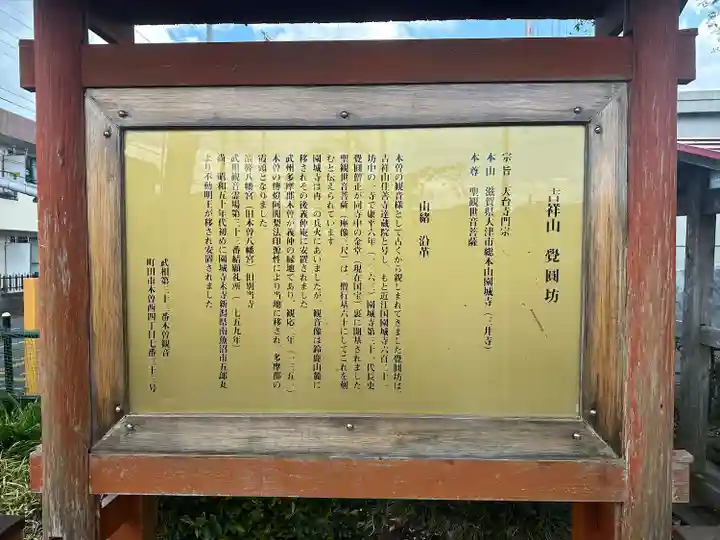 吉祥山　覺圓坊
宗旨　天台寺門宗
本山　滋賀県大津市総本山園城寺（三井寺）
本尊　聖観世音菩薩
由緒　沿革
木曽の観音様として古くから親しまれてきました覺圓坊は、
吉祥山住善寺達蔵院と号し、もと近江国園城寺六百二十一
坊中の一寺で康平六年（一〇六三）園城寺第三十一代長吏
覺圓僧正が同寺中の金堂（現在国宝）裏に開基されました
聖観世音菩薩（座像三尺）は、僧行基六十にしてこれを刻
むと伝えられています
園城寺は再三の兵火にあいましたが、観音像は鈴鹿山麓に
移されその後義仲庵に安置されました
武州多摩郡木曽が義仲の縁地であり、観応二年（一三五一）
木曽の傳燈阿闍梨法印源性により当地に移され、多摩郡の
霞頭となりました
頭幹八幡宮（旧木曽八幡宮）旧別当寺
武相観音霊場三十三番結願札所（一七五九年）
尚、昭和五十年代初めに園城寺末寺新潟県南魚沼市五郎丸
より不動明王が移され安置されました
武相第三十三番木曽観音
町田市木曽西四丁目七番三十三号